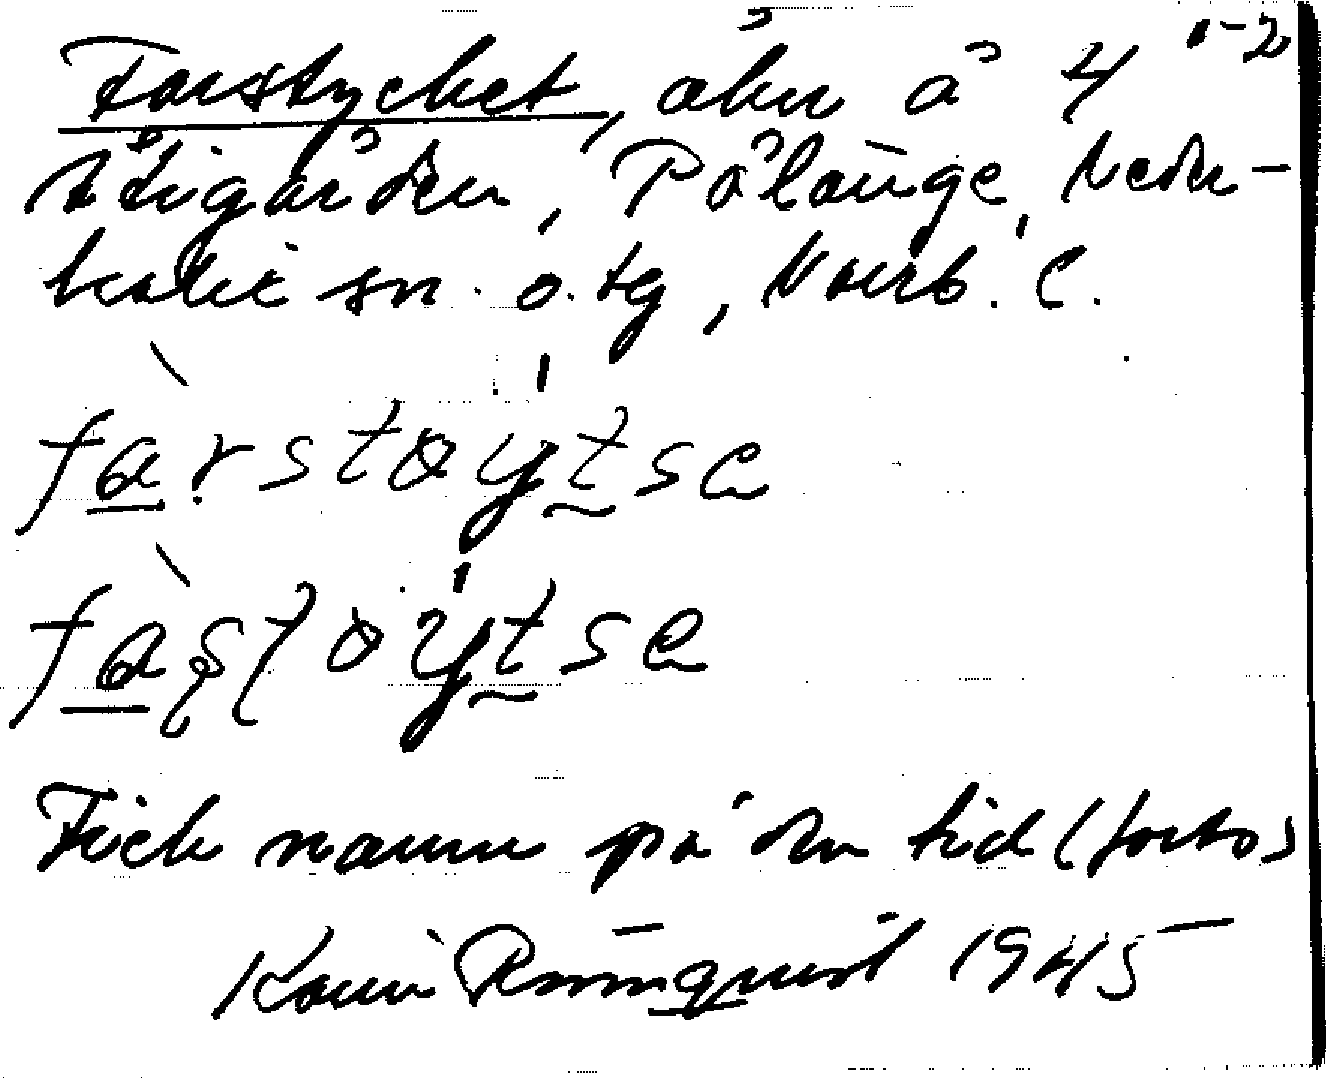 Farstycket, åker å 4 1-2
Stigården, Pålänge, Neder-
kalix sn. o. tg, Norrb. l.
fàrstøýtse
fàʂʈøýtse
Fick namn på den tid (forts)
Karin Rönnquist 1945